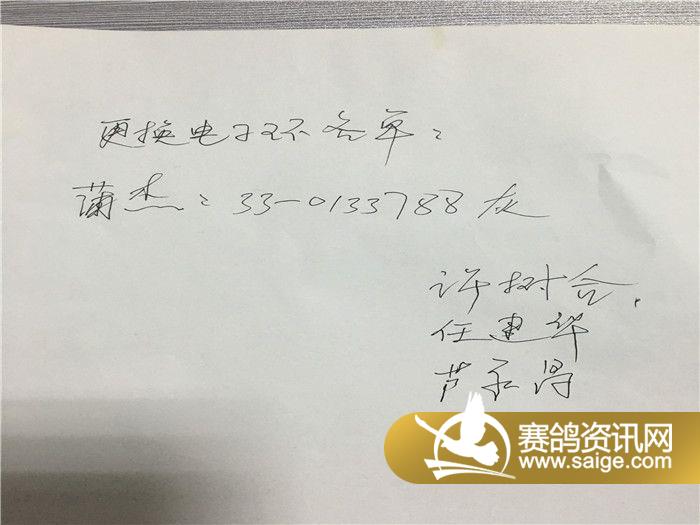 更换电子环名单：
蒲杰：33-0133788灰
许树合，
任建华
芦永得
赛鸽资讯网
www.saige.com